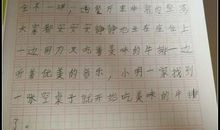 全不一样，西餐厅里非常的安静
大家都安安静静地坐在座位上
一边用刀叉吃着美味的牛排一边
听着优美的音乐，小明一家找到
一张空桌子就开始吃美味的牛排
了。